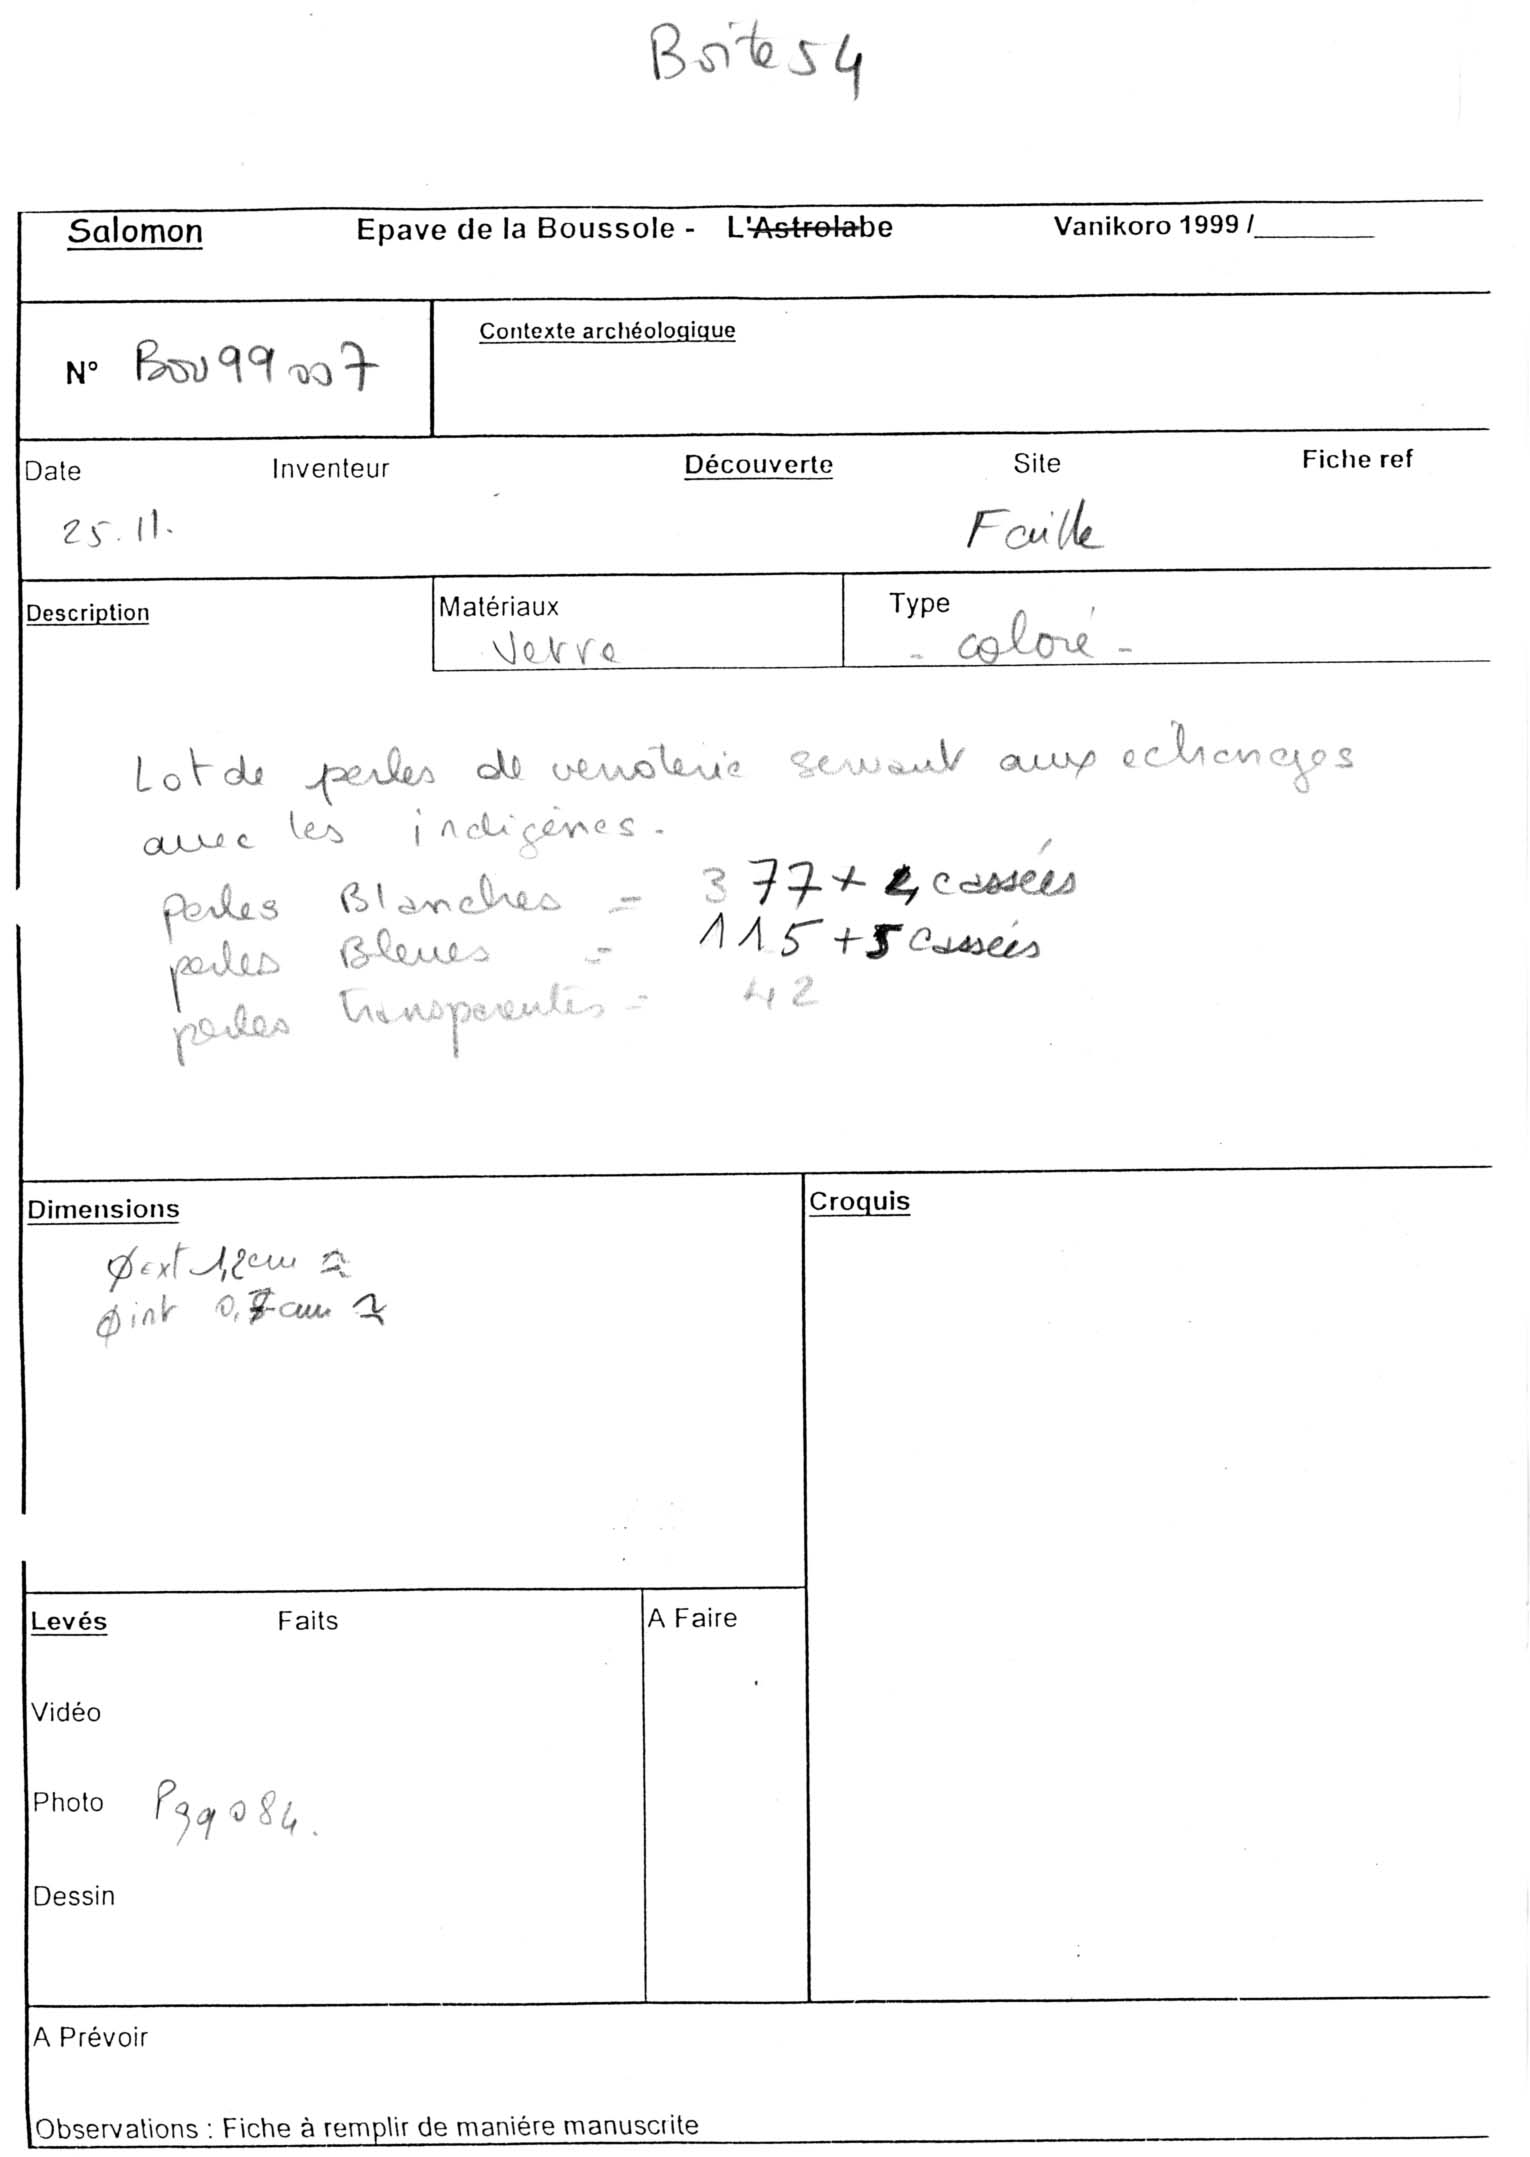 Boite 54
Salomon Epave de la Boussole - L'Astrolabe Vanikoro 1999 /________
N° Bou 99 007 Contexte archéologique
Date Inventeur Découverte Site Fiche ref
25.11. Faille
Description Matériaux Type
Verre - coloré -
Lot de perles de verroterie servant aux echanges
avec les indigènes.
perles Blanches = 377 + 4 cassées
perles Bleues = 115 + 5 cassées
perles transparentes = 42
Dimensions Croquis
Ø ext 1,2cm
Ø int 0,7cm
Levés Faits A Faire
Vidéo
Photo P99084.
Dessin
A Prévoir
Observations : Fiche à remplir de maniére manuscrite